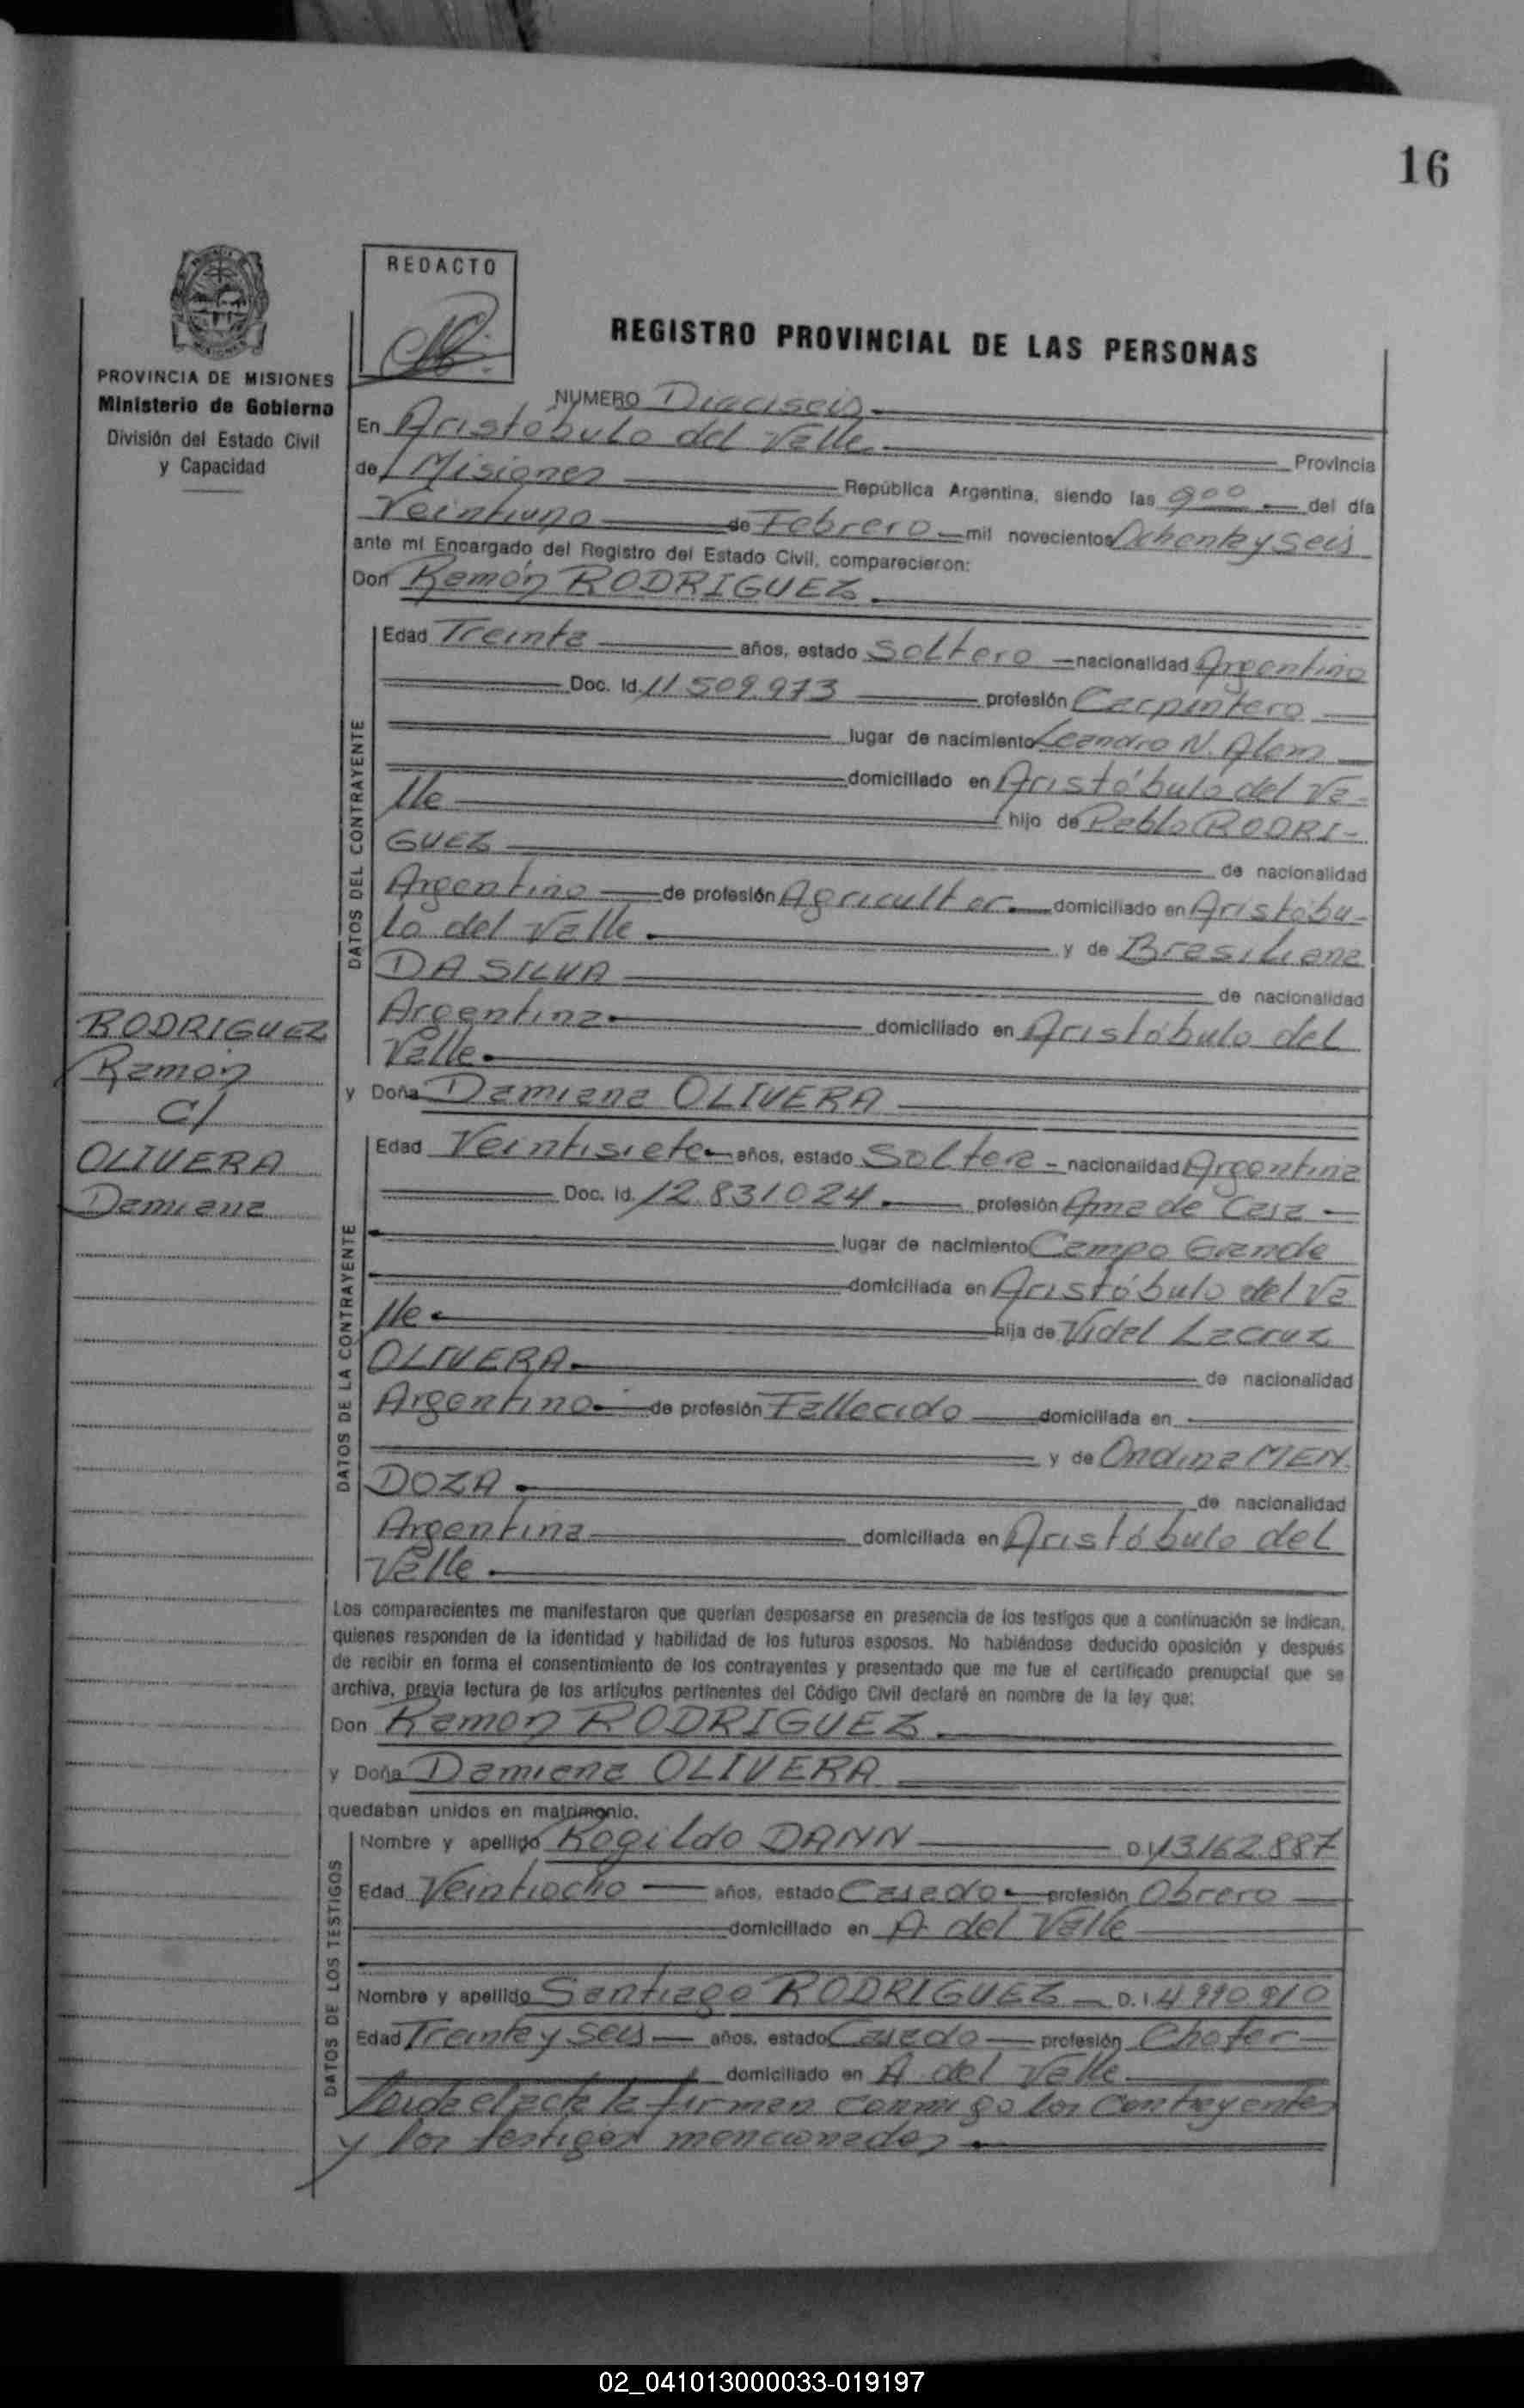 16
REDACTO
REGISTRO PROVINCIAL DE LAS PERSONAS
PROVINCIA DE MISIONES
Ministerio de Gobierno
División del Estado Civil
y Capacidad
NUMERO Dieciseis
En Aristóbulo del Valle Provincia
de Misiones República Argentina, siendo las 900 del día
Veintiuno de Febrero mil novecientos Ochentayseis
ante mí Encargado del Registro del Estado Civil, comparecieron:
Don Ramón RODRIGUEZ
DATOS DEL CONTRAYENTE
Edad Treinta años, estado Soltero nacionalidad Argentino
Doc. Id. 11 509.973 profesión Carpintero
lugar de nacimiento Leandro N. Alem
domiciliado en Aristóbulo del Va-
lle hijo de Pablo RODRI-
GUEZ de nacionalidad
Argentino de profesión Agricultor domiciliado en Aristóbu-
lo del Valle y de Brasiliana
DA SILVA de nacionalidad
Argentina domiciliado en Aristóbulo del
Valle
RODRIGUEZ
Ramón
C/
OLIVERA
Damiana
y Doña Damiana OLIVERA
DATOS DE LA CONTRAYENTE
Edad Veintisiete años, estado Soltera - nacionalidad Argentina
Doc. Id. 12.831024 profesión Ama de Casa
lugar de nacimiento Campo Grande
domiciliada en Aristóbulo del Va
lle hija de Vidal Lacruz
OLIVERA de nacionalidad
Argentino de profesión Fallecido domiciliada en
y de Ondina MEN
DOZA de nacionalidad
Argentina domiciliada en Aristóbulo del
Valle
Los comparecientes me manifestaron que querían desposarse en presencia de los testigos que a continuación se indican,
quienes responden de la identidad y habilidad de los futuros esposos. No habiéndose deducido oposición y después
de recibir en forma el consentimiento de los contrayentes y presentado que me fue el certificado prenupcial que se
archiva, previa lectura de los artículos pertinentes del Código Civil declaré en nombre de la ley que:
Don Ramón RODRIGUEZ
y Doña Damiana OLIVERA
quedaban unidos en matrimonio.
DATOS DE LOS TESTIGOS
Nombre y apellido Rogildo DANN D.I. 13.162.887
Edad Veintiocho años, estado Casado profesión Obrero
domiciliado en A. del Valle
Nombre y apellido Santiago RODRIGUEZ D.I. 4990910
Edad Treintayseis años, estado Casado profesión Chofer
domiciliado en A. del Valle
el acta la firman conmigo los Contrayentes
y los testigos mencionados
02_041013000033-019197